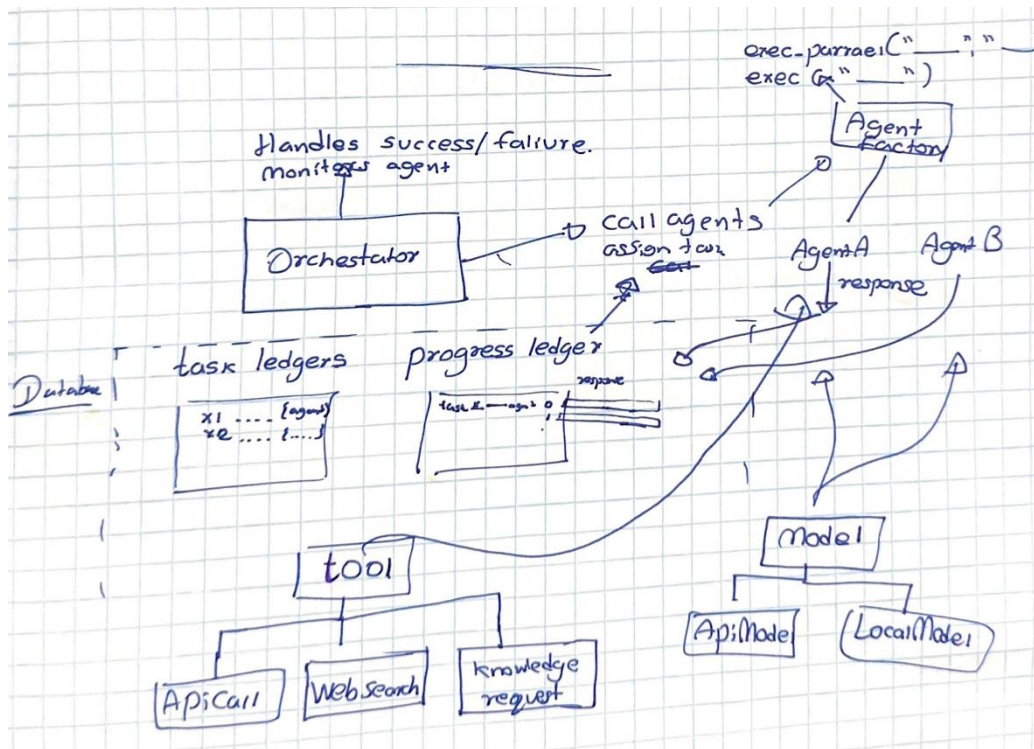 exec-parrael("____", "__
exec ("____")
Agent
factory
Handles success/faliure.
monitors agent
Orchestator
call agents
assign task
AgentA
Agent B
response
Database
task ledgers
progress ledger
response
x1 .... {agent}
x2 .... {....}
tool
ApiCall
Web Search
knowledge
request
Model
ApiModel
LocalModel